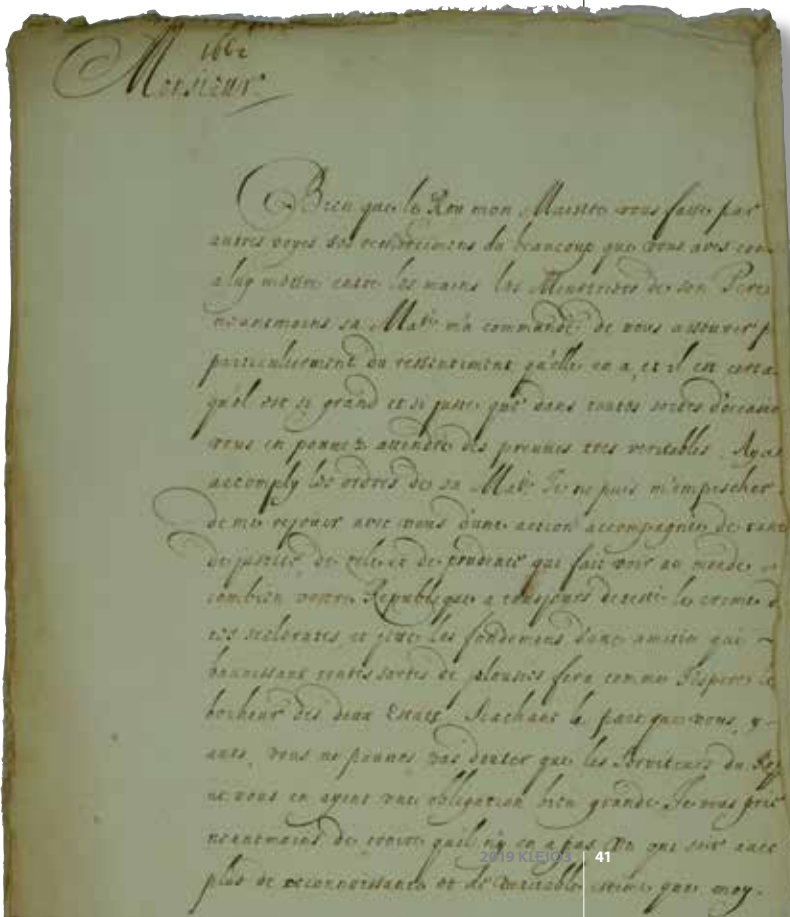 1662
Monsieur
Bien que le Roy mon Maistre vous fasse par
autres voyes ses remerciemens du beaucoup que vous aves con
a luy mettre entre les mains les Meurtriers de son Pere
neantmoins sa Maté m'a commandé de vous asseurer
particulierement du ressentiment qu'elle en a, et il est certa
qu'il est si grand et si juste que dans toutes sortes d'occasio
vous en pouvez attendre des preuves tres veritables. Aya
accomply les ordres de sa Maté Je ne puis m'empescher
de me rejouir avec vous d'une action accompagnée de tant
de justice, de zele et de prudence qui fait voir au monde
combien vostre Republique a tousjours detesté le crime d
ces scelerates, et jette les fondemens d'une amitié qui
bannissant toutes sortes de jalousies fera comme J'espere le
bonheur des deux Estats. Scachant la part que vous, y
avés, vous ne pouves pas douter que les Serviteurs du Roy
ne vous en ayent une obligation bien grande. Je vous prie
neantmoins de croire qu'il n'y en a pas un qui soit avec
plus de reconnoissance et de veritable estime que moy.
2019 KLEIO 3 | 41